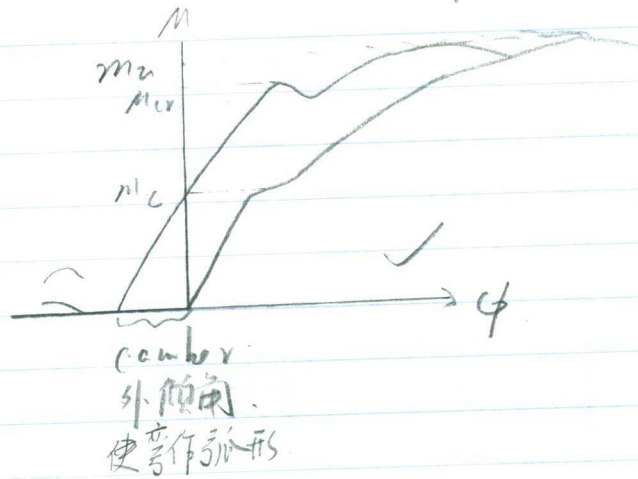 M
Mu
Mcr
Mc
φ
camber
外倾角.
使弯作弧形